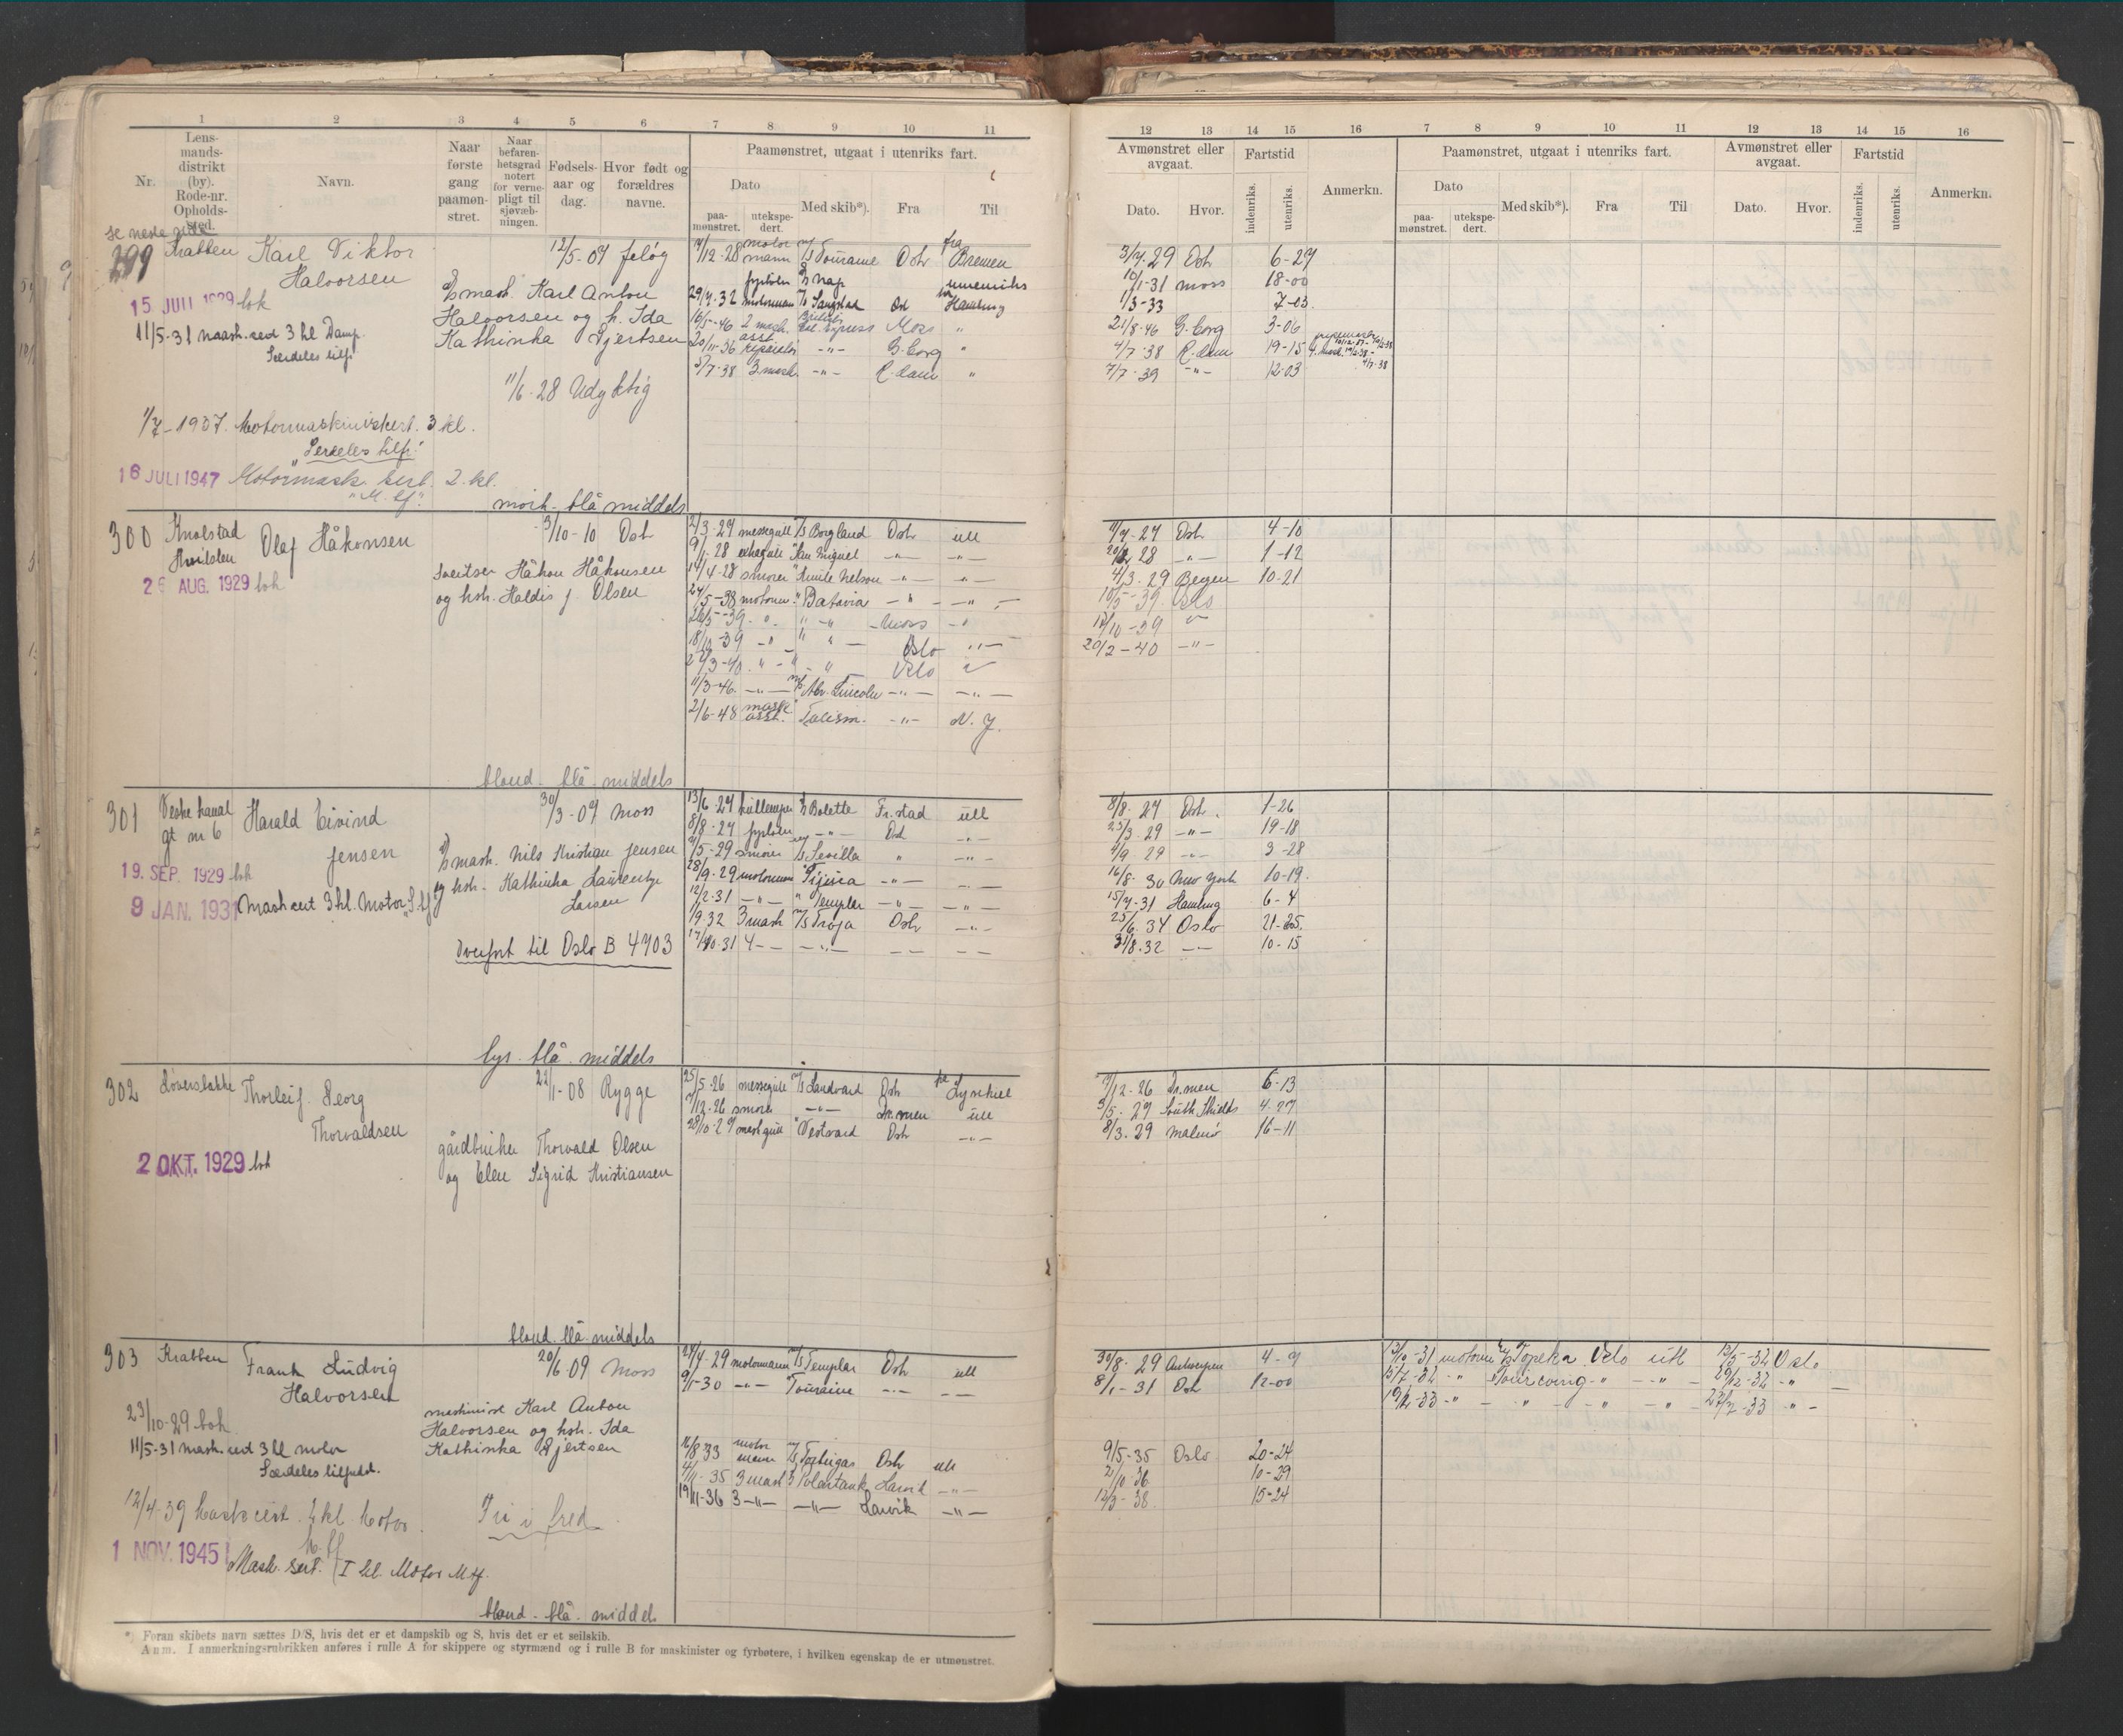 1 2 3 4 5 6 7 8 9 10 11
Nr. Lens-mands-distrikt (by). Rode-nr. Opholds-sted. Navn. Naar første gang paamøn-stret. Naar befaren-hetsgrad notert for verne-pligt til sjøvæb-ningen. Fødsels-aar og dag. Hvor født og forældres navne.
Paamønstret, utgaat i utenriks fart.
Dato paa-mønstret. utekspe-dert. Med skib*). Fra Til
12 13 14 15 16 7 8 9 10 11 12 13 14 15 16
Avmønstret eller avgaat. Dato. Hvor. Fartstid indenriks. utenriks. Anmerkn.
Paamønstret, utgaat i utenriks fart. Dato paa-mønstret. utekspe-dert. Med skib*). Fra Til
Avmønstret eller avgaat. Dato. Hvor. Fartstid indenriks. utenriks. Anmerkn.
se neste side
299 Krabben Karl Viktor 12/5-07 Jeløy
Halvorsen
15 JULI 1929 bok mask. Karl Anton
Halvorsen og h. Ida
11/5-31 mask.cert 3 kl Damp. Kathinka Gjertsen
Særdeles tilf.
11/6-28 Udyktig
1/7-1937. Motormaskinistcert. 3 kl.
"Serdeles tilf."
16 JULI 1947 Motormask. sert. 2. kl.
"M. tf."
mørk - blå middels
14/12-28 motor mann M/S Touraine Osl fra Bremen
29/7-32 motormann Sangstad Osl Hamburg
16/5-46 2 mask. Express Moss "
20/11-36 asst. reparatør -"- G.borg "
5/7-38 3. mask. -"- R.dam "
3/7-29 Osl 6-27
10/1-31 Moss 18-00
1/3-33 7-03
21/8-46 G.borg 3-06
4/7-38 R.dam 19-15
7/7-39 -"- 12-03
300 Knolstad Olaf Håkonsen 3/10-10 Osl
26 AUG. 1929 bok sveitser Håkon Håkonsen
og hsh. Haldis f. Olsen
bland - blå - middels
2/3-27 messegutt M/S Borgland Osl utl
9/1-28 San Miguel -"- -"-
14/4-28 smører " Knute Nelson -"- -"-
24/5-38 motorm. " Batavia -"- -"-
26/5-39 " " -"- Moss -"-
18/10-39 -"- " " - Oslo -"-
27/3-40 " - " - " Oslo
11/3-46. -"- M/S Abr. Lincoln -"- -"-
2/6-48 mask asst. " Talism. -"- N.Y.
11/7-27 Osl 4-10
28 -"- 1-12
4/3-29 Bergen 10-21
10/5-39. Oslo
17/10-39 "
20/2-40 -"-
301 Vestre kanal Harald Eivind 30/3-07 Moss
gt nr 6 Jensen
mask. Nils Kristian Jensen
19. SEP. 1929 bok og hsh. Kathinka Laurentze
Larsen
9 JAN. 1931 Maskcert 3 kl. Motor "S.tf"
Overført til Oslo B 4703
lys - blå - middels
13/6-27 kullemper Bolette Fr.stad utl
8/8-27 fyrbøter -"- Osl -"-
5-29 smører M/S Sevilla " -"-
28/9-29 motormann " Tijuca -"- -"-
12/2-31 -"- " Templar -"- -"-
1/9-32 3 mask M/S Troja Osl -"-
17/10-31 4 -"- -"- -"- -"-
8/8-27 Osl 1-26
23/3-29 -"- 19-18
9-29 -"- 3-28
16/8-30 New York 10-19.
15/7-31 Hamburg 6-4
25/6-34 Oslo 21-25.
31/8-32 -"- 10-15
302 Løverslokke Thorleif Georg 22/1-08 Rygge
Thorvaldsen
gårdbruker Thorvald Olsen
2 OKT. 1929 bok
og Elen Sigrid Kristiansen
bland - blå - middels
25/5-26 messegutt M/S Landvard Osl til Lysekiel
7/12-26 smører -"- Dr.men utl
28/10-27 messgutt " Vestvard Osl -"-
7/12-26 Dr.men 6-13
3/5-27 South Shields 4-27
8/3-29 Malmø 16-11
303 Krabben Frank Ludvig 20/6-09 Moss
Halvorsen
maskinist Karl Anton
23/10-29 bok Halvorsen og hsh. Ida
11/5-31 mask.cert 3 kl motor Kathinka Gjertsen
Særdeles tilfredst.
12/4-39 Maskcert. 2 kl Motor. Fri i fred
M. tf
1 NOV. 1945 Mask. sert. I kl. Motor M.tf.
bland - blå - middels
27/4-29 motormann M/S Templar Osl utl
9/1-30 -"- " Touraine -"- -"-
16/8-33 motor mann M/S Tortugas Osl utl
4/11-35 3 mask Polartank Larvik -"-
19/11-36 3 -"- -"- Larvik -"-
30/8-29 Antwerpen 4-9
8/1-31 Osl 12-00
9/5-35 Oslo. 20-24
2/10-36 10-29
12/3-38 15-24
13/10-31 motorm Topeka Oslo utl 13/5-32 Oslo
15/7-32 -"- Tourcoing -"- -"- 29/12-32 -"-
-33 -"- -"- -"- -"- 7-33 -"-
*) Foran skibets navn sættes D/S, hvis det er et dampskib og S, hvis det er et seilskib.
Anm. I anmerkningsrubrikken anføres i rulle A for skippere og styrmænd og i rulle B for maskinister og fyrbøtere, i hvilken egenskap de er utmønstret.